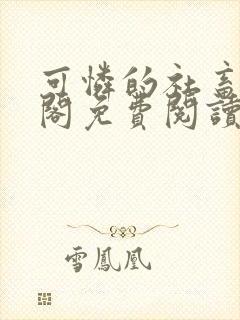 可憐的社畜
閣免費閱讀
雪鳳凰